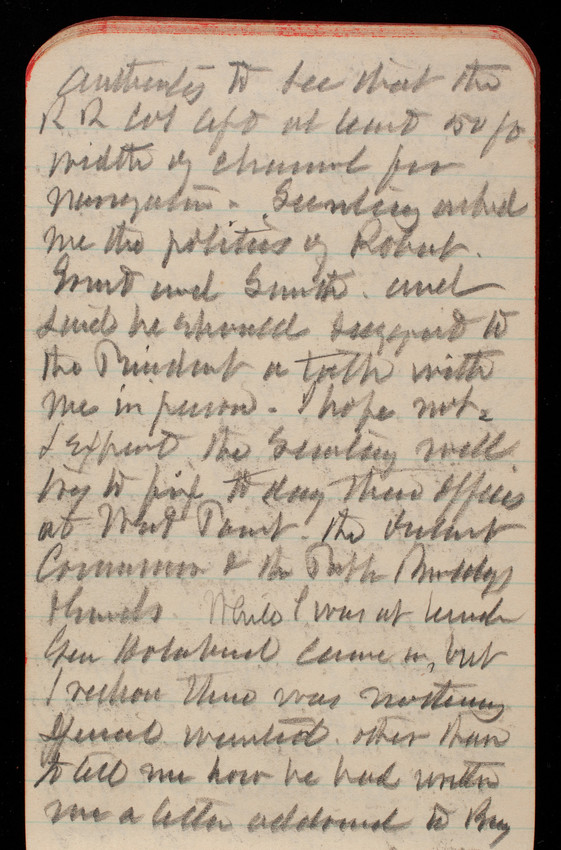 authority to see that the
R R Co's left at least 250 ft
width of channel for
navigation. Secretary asked
me the politics of Robert.
Grant and Smith. and
said he should suggest to
the President a talk with
me in person. I hope not.
I expect the Secretary will
try to fix to day these offices
at West Point. the
Commission & the Public Buildings
While I was at lunch
Gen Holabird came in, but
I reckon there was nothing
special wanted. other than
to tell me how he had written
me a letter addressed to Brig